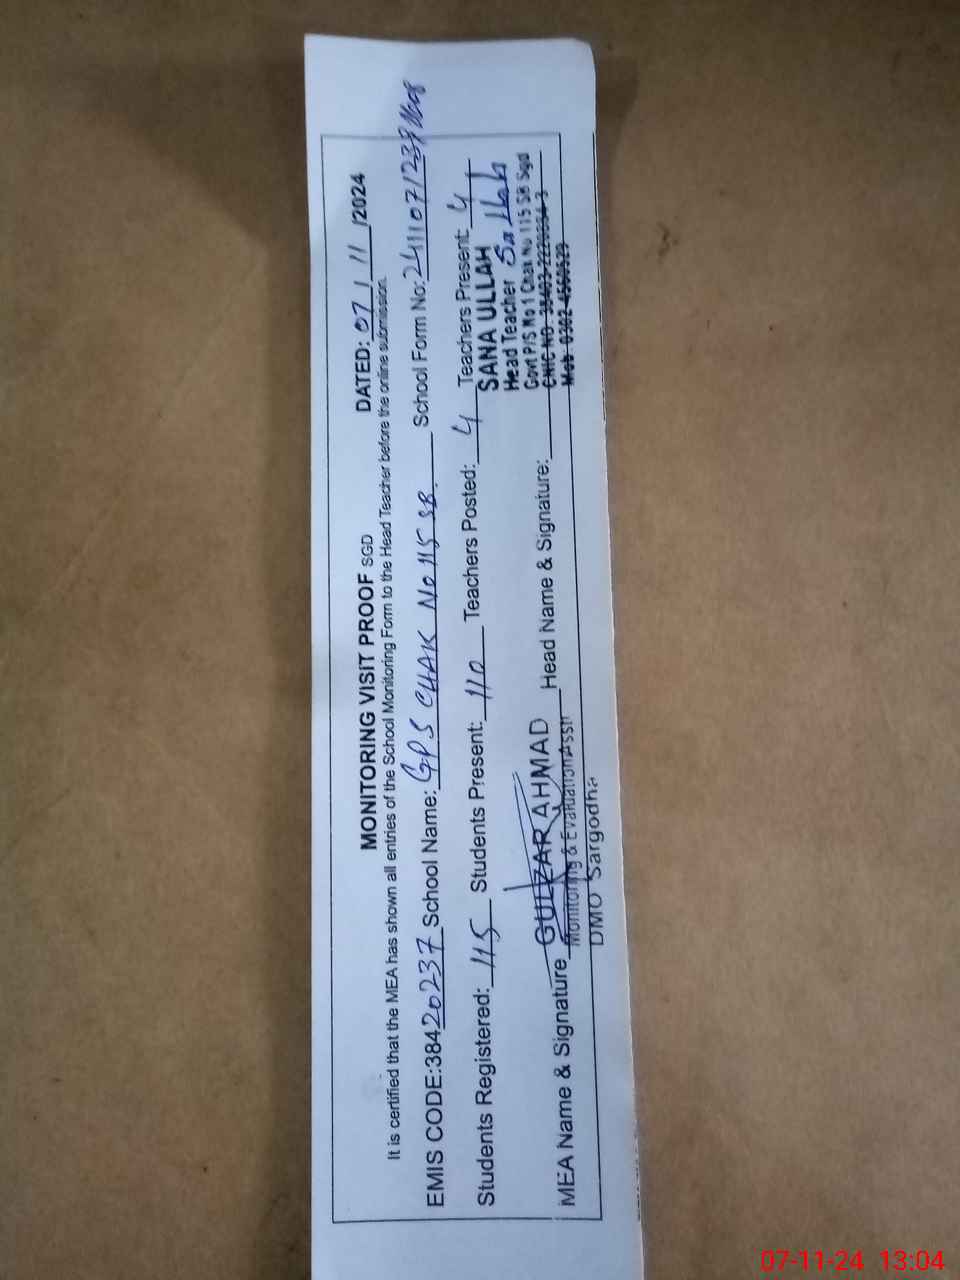 MONITORING VISIT PROOF SGD DATED: 07 / 11 /2024
It is certified that the MEA has shown all entries of the School Monitoring Form to the Head Teacher before the online submission.
EMIS CODE:38420237 School Name: GPS CHAK No 115 SB. School Form No:
Students Registered: 115 Students Present: 110 Teachers Posted: 4 Teachers Present: 4
MEA Name & Signature GULZAR AHMAD Head Name & Signature:
Monitoring & Evaluation Asstt
DMO Sargodha
SANA ULLAH
Head Teacher
Govt P/S No 1 Chak No 115 SB Sgd
CNIC NO.
Mob: 0302-4560529
07-11-24 13:04